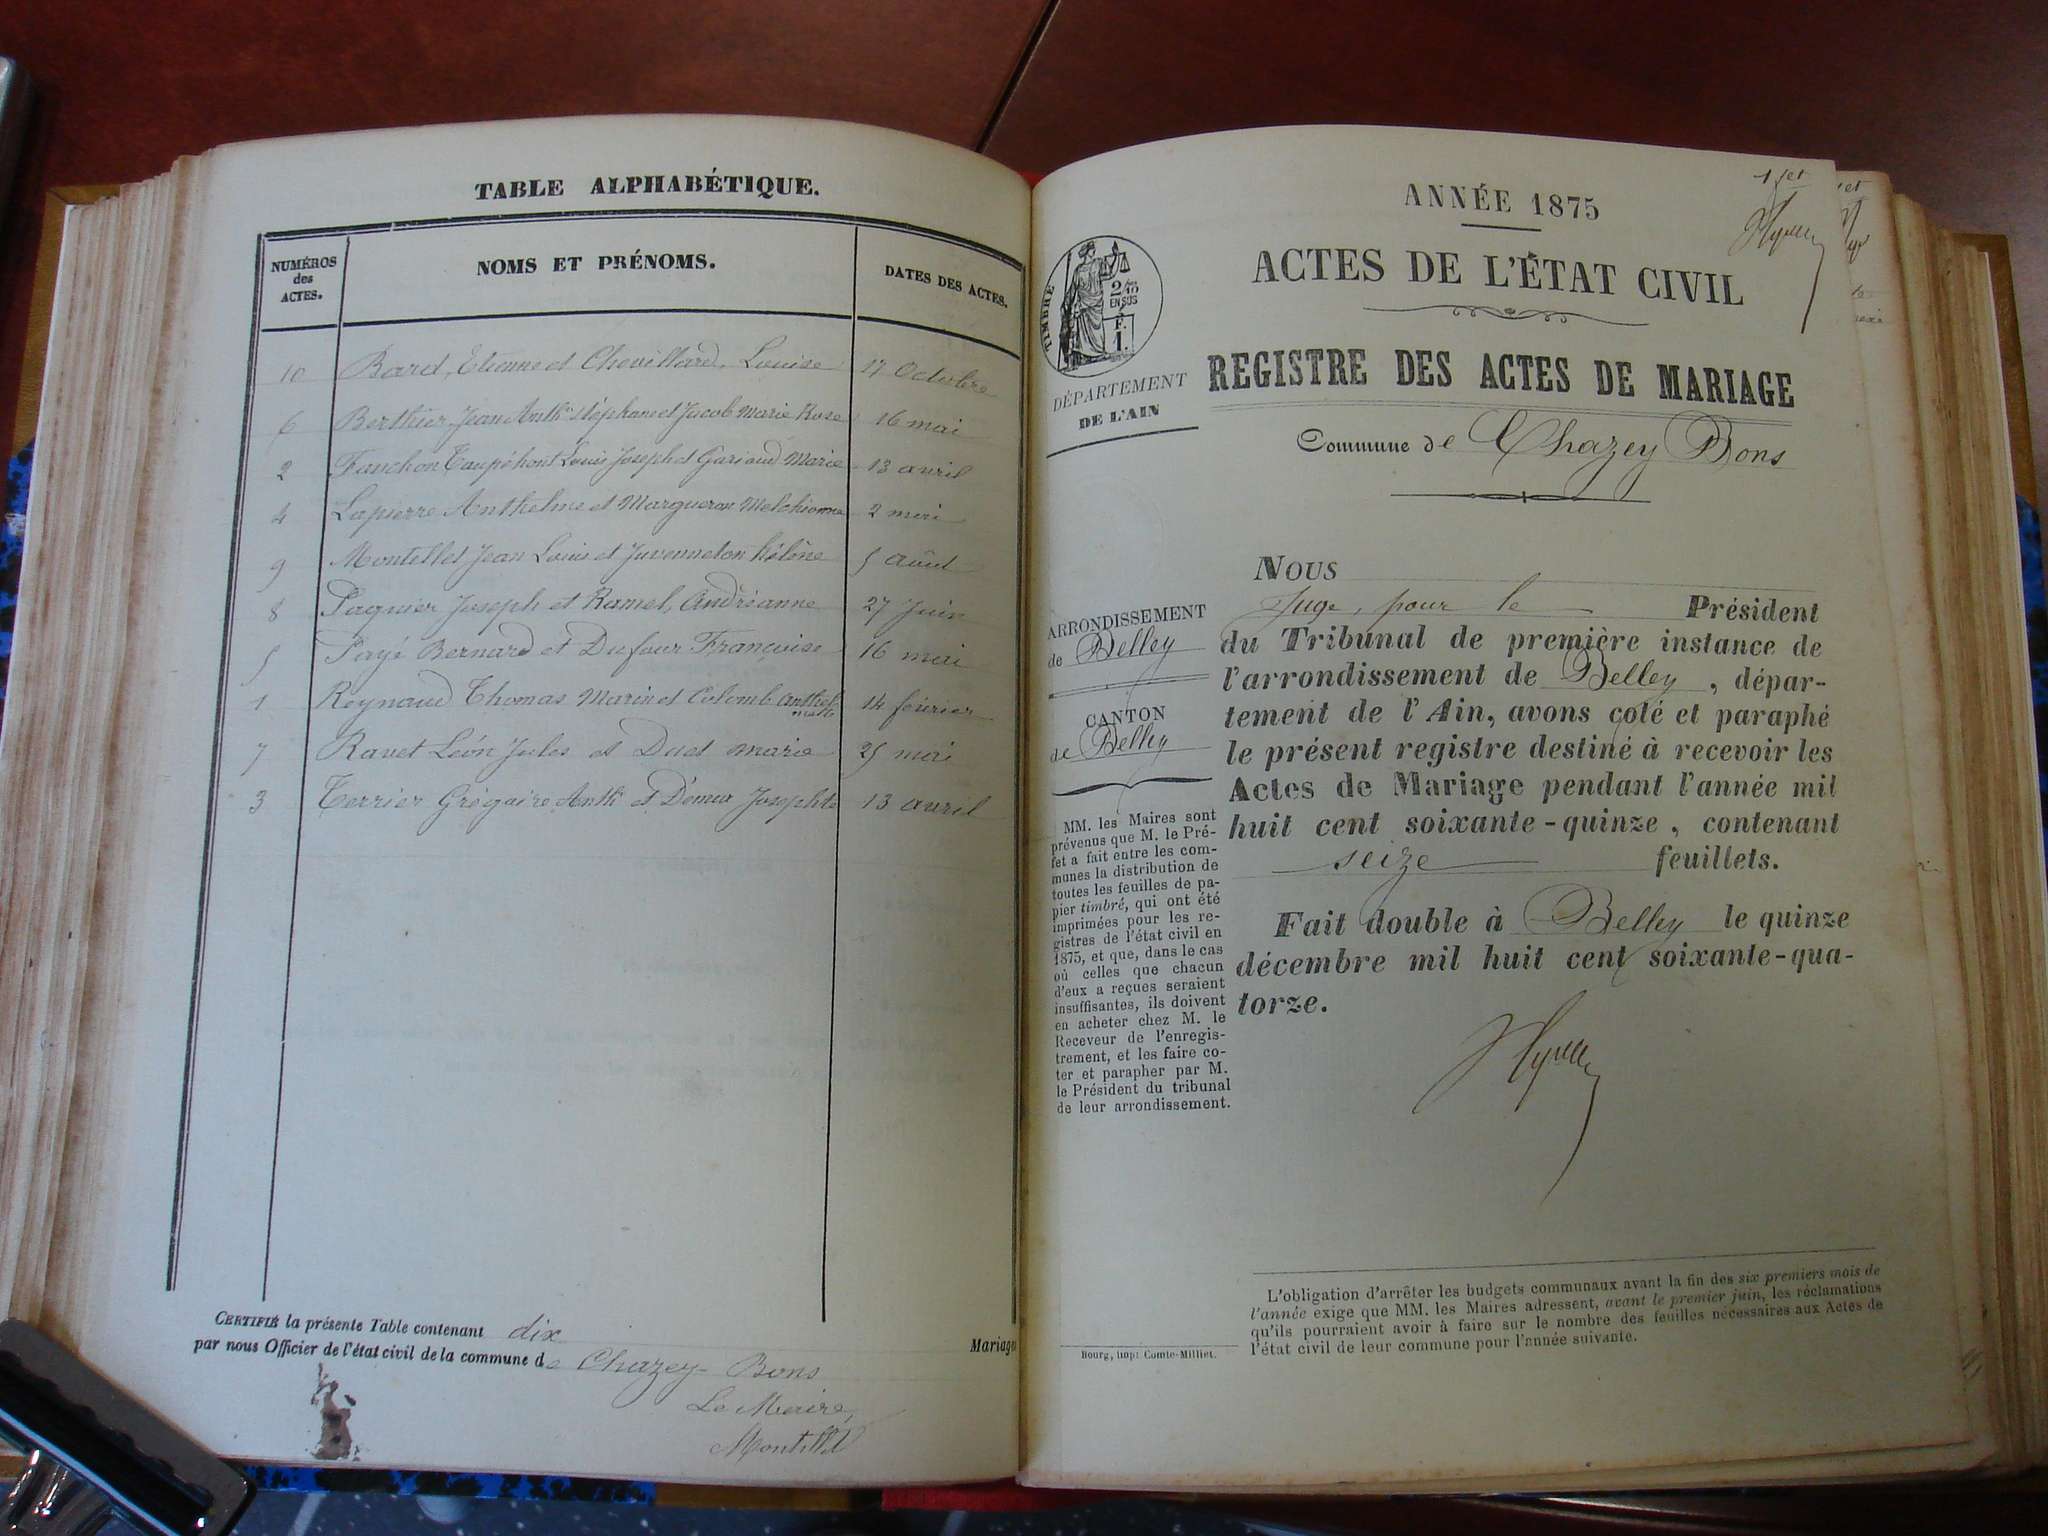 TABLE ALPHABÉTIQUE.
NUMÉROS
des
ACTES.
NOMS ET PRÉNOMS.
DATES DES ACTES.
10 Bard, Etienne et Chevillard, Louise 17 Octobre
6 Berthier, Jean Anth. Stéphane et Jacob Marie Rose 16 mai
2 Fanchon Taupéhont Louis Joseph et Garioud Marie 13 avril
4 Lapierre Anthelme et Margueron Melchionne 2 mai
9 Montillet Jean Louis et Juvenneton hélène 5 Août
8 Paguier Joseph et Ramel, Andréanne 27 Juin
5 Payé Bernard et Dufour Françoise 16 mai
1 Reynaud Thomas Marin et Colomb 14 février
7 Ravet Léon Jules et Duet marie 25 mai
3 Terrier Grégoire Anth. et Josephte 13 avril
CERTIFIÉ la présente Table contenant dix Mariage
par nous Officier de l'état civil de la commune de Chazey-Bons
Le Maire,
Montillet
1er
ANNÉE 1875
ACTES DE L'ÉTAT CIVIL
TIMBRE
2/10
EN SUS
F.
1.
DÉPARTEMENT
DE L'AIN
REGISTRE DES ACTES DE MARIAGE
Commune de Chazey Bons
ARRONDISSEMENT
de Belley
CANTON
de Belley
MM. les Maires sont
prévenus que M. le Pré-
fet a fait entre les com-
munes la distribution de
toutes les feuilles de pa-
pier timbré, qui ont été
imprimées pour les re-
gistres de l'état civil en
1875, et que, dans le cas
où celles que chacun
d'eux a reçues seraient
insuffisantes, ils doivent
en acheter chez M. le
Receveur de l'enregis-
trement, et les faire co-
ter et parapher par M.
le Président du tribunal
de leur arrondissement.
NOUS
Juge, pour le Président
du Tribunal de première instance de
l'arrondissement de Belley, dépar-
tement de l'Ain, avons coté et paraphé
le présent registre destiné à recevoir les
Actes de Mariage pendant l'année mil
huit cent soixante-quinze, contenant
seize feuillets.
Fait double à Belley le quinze
décembre mil huit cent soixante-qua-
torze.
L'obligation d'arrêter les budgets communaux avant la fin des six premiers mois de
l'année exige que MM. les Maires adressent, avant le premier juin, les réclamations
qu'ils pourraient avoir à faire sur le nombre des feuilles nécessaires aux Actes de
l'état civil de leur commune pour l'année suivante.
Bourg, imp: Comte-Milliet.